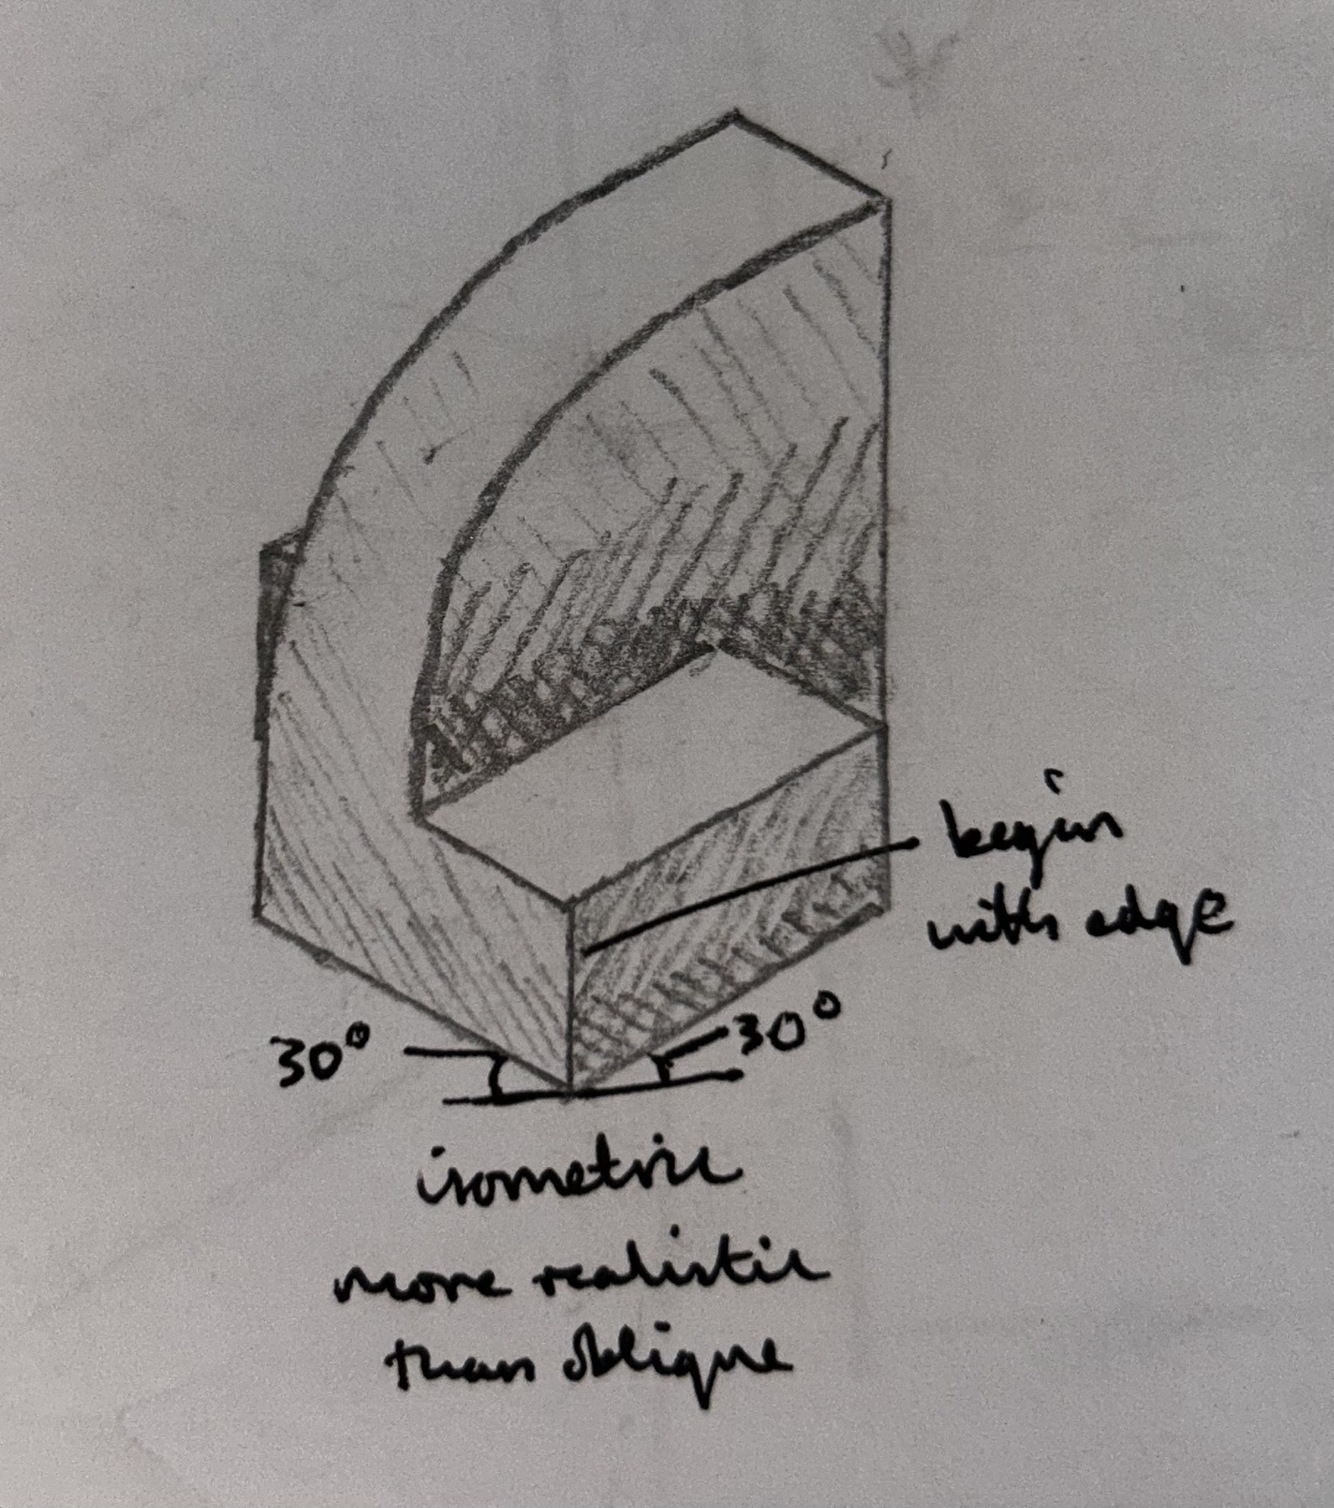 begin
with edge
30°
30°
isometric
more realistic
than oblique